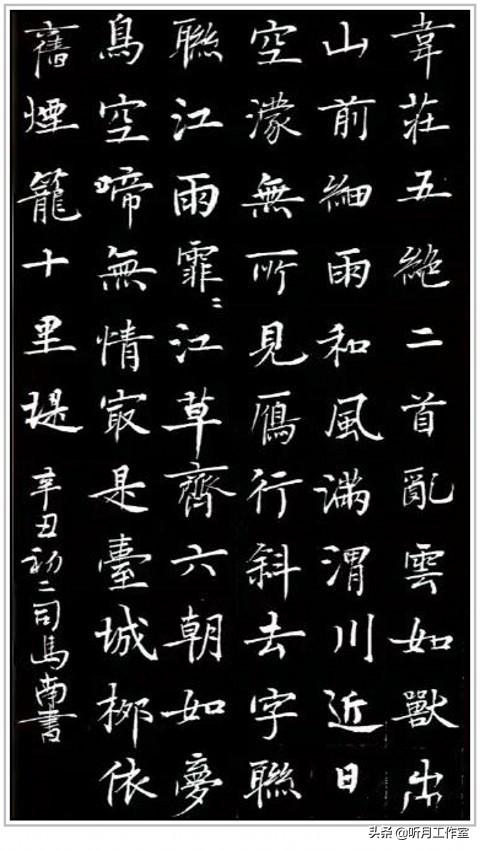 韋莊五絶二首亂雲如獸出
山前細雨和風滿渭川近日
空濛無所見鴈行斜去字聯
聯江雨霏〻江草齊六朝如夢
鳥空啼無情㝡是臺城柳依
舊煙籠十里堤
辛丑初二司馬南書
头条 @听月工作室